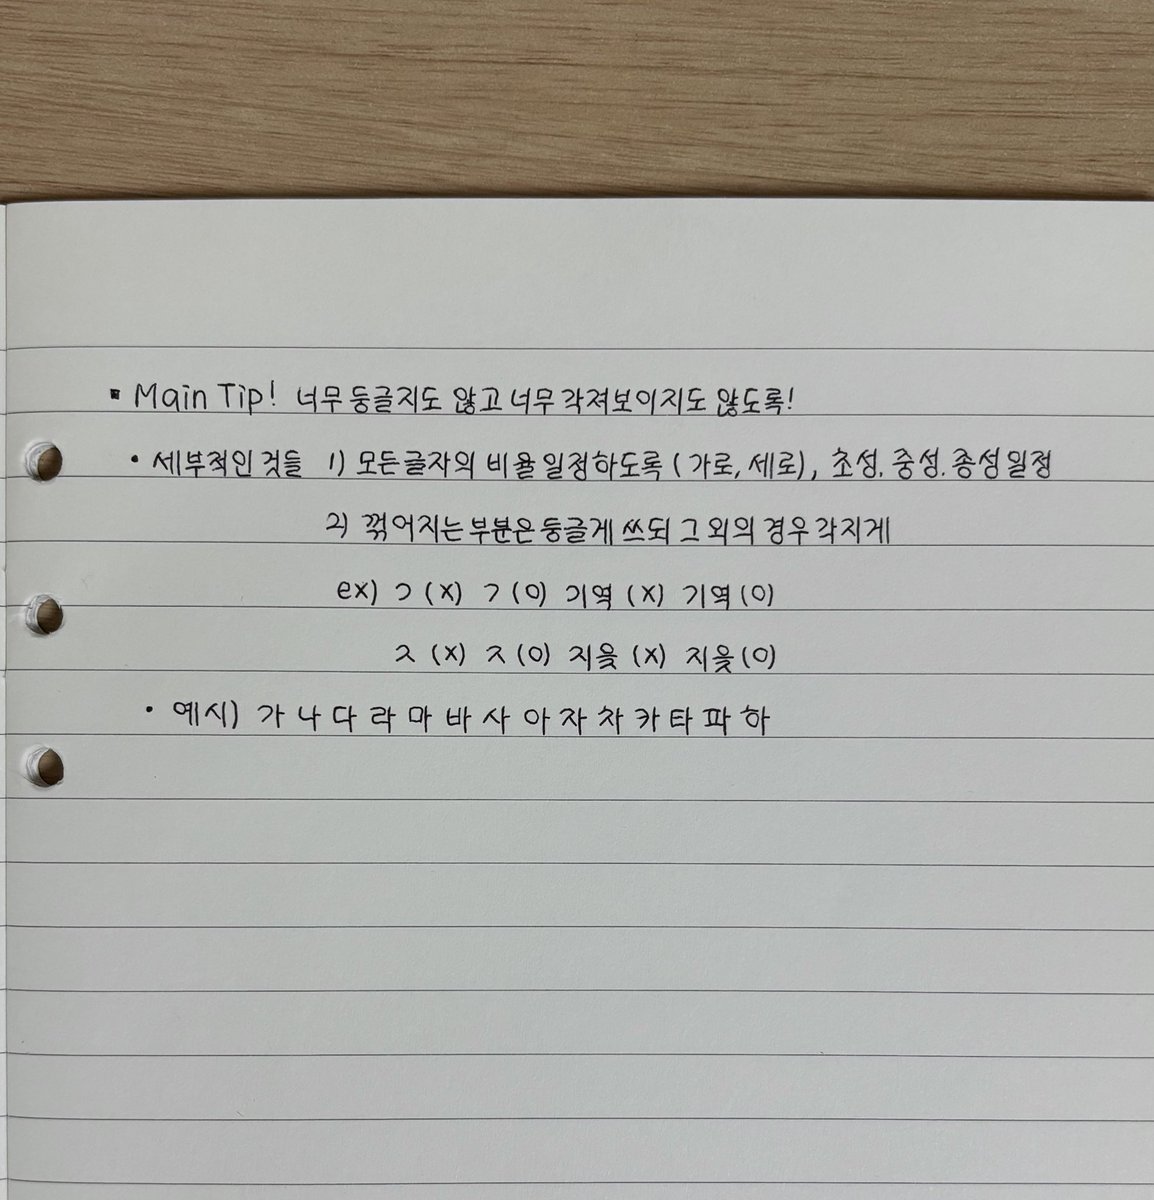 ▪ Main Tip! 너무 둥글지도 않고 너무 각져보이지도 않도록!
• 세부적인 것들 1) 모든 글자의 비율 일정하도록 (가로, 세로), 초성. 중성. 종성 일정
2) 꺾어지는 부분은 둥글게 쓰되 그 외의 경우 각지게
ex) ㄱ (x) ㄱ (o) 기역 (x) 기역 (o)
ㅈ (x) ㅈ (o) 지읒 (x) 지읒 (o)
• 예시) 가 나 다 라 마 바 사 아 자 차 카 타 파 하